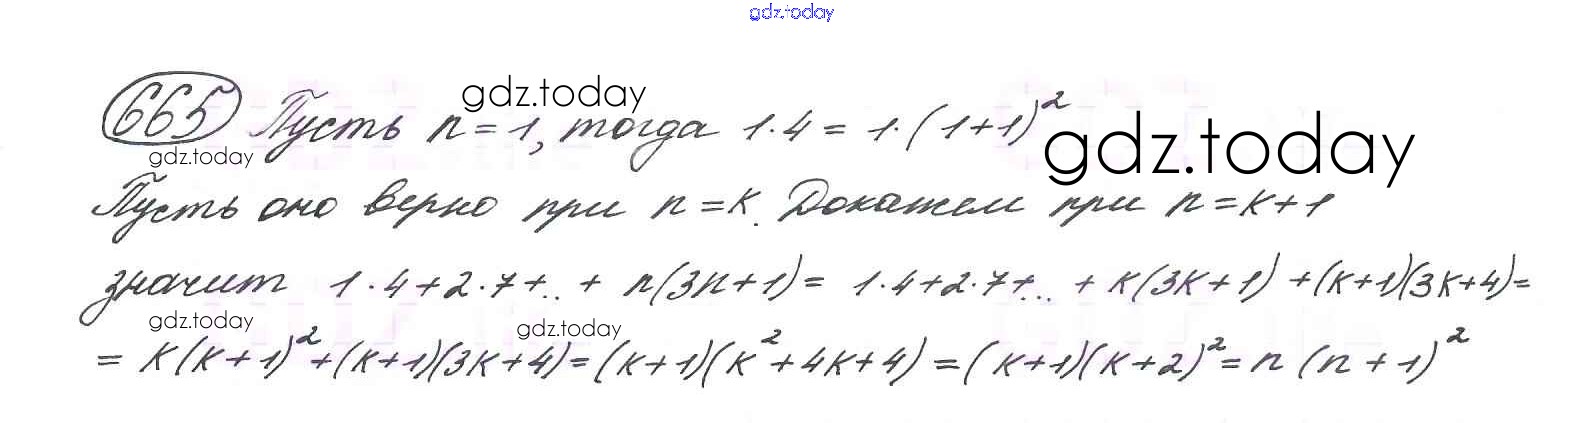 gdz.today
665 Пусть n = 1, тогда 1·4 = 1·(1+1)²
gdz.today
gdz.today
gdz.today
Пусть оно верно при n = k. Докажем при n = k+1
значит 1·4+2·7+.. + n(3n+1) = 1·4+2·7+... + k(3k+1) +(k+1)(3k+4)=
gdz.today
gdz.today
= k(k+1)²+(k+1)(3k+4)=(k+1)(k²+4k+4) =(k+1)(k+2)²= n(n+1)²